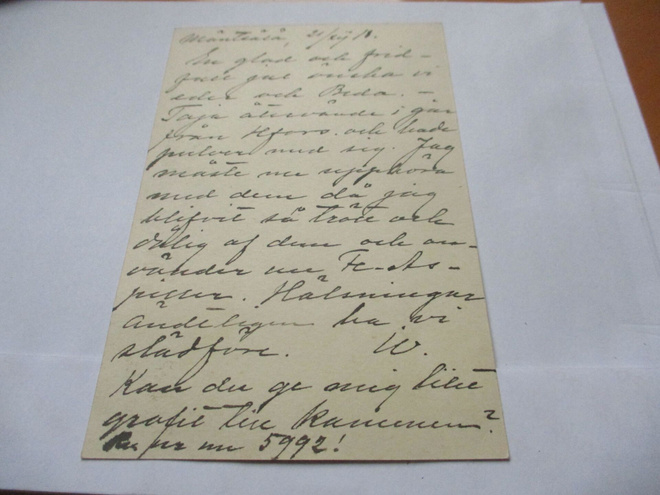 Mänttälä, 21/XII 18.
En glad och frid-
full jul önska vi
eder och Beda. –
Taja återvände i går
från H:fors och hade
pulver med sig. Jag
måste nu upphöra
med dem då jag
blifvit så trött och
dålig af dem och an-
vänder nu Fe-As-
piller. Hälsningar
Ändteligen ha vi
slädföre. W.
Kan du ge mig litet
grafit till kaminen?
pr nu 5992!